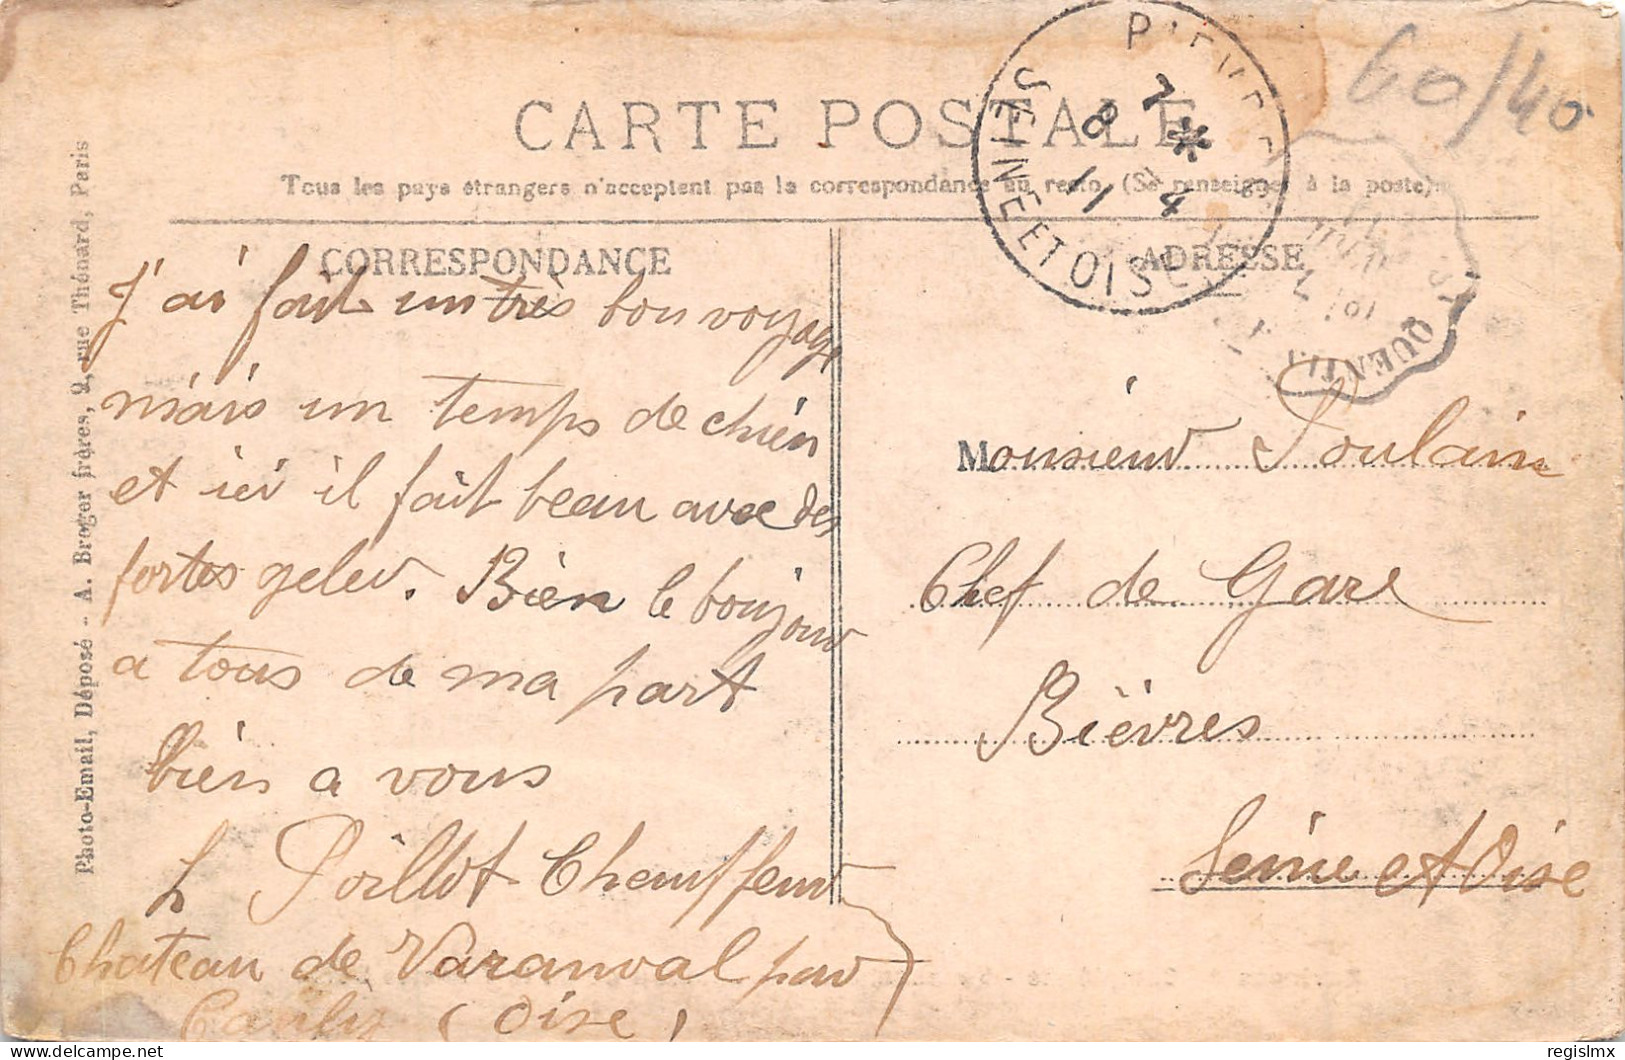 60/40
CARTE POSTALE
Tous les pays étrangers n'acceptent pas la correspondance au recto. (Se renseigner à la poste)
CORRESPONDANCE
J'ai fait un très bon voyage
mais un temps de chien
et ici il fait beau avec des
fortes gelev. Bien le bonjour
a tous de ma part
bien a vous
L Poillot Chauffeur
Chateau de Varanval par
Canly (Oise)
ADRESSE
Monsieur Poulain
Chef de Gare
Bièvres
Seine et Oise
SEINE ET OISE
7 * 8 11 4
QUENTIN
Photo-Email, Déposé - A. Breger frères, 9, rue Thénard, Paris
regislmx